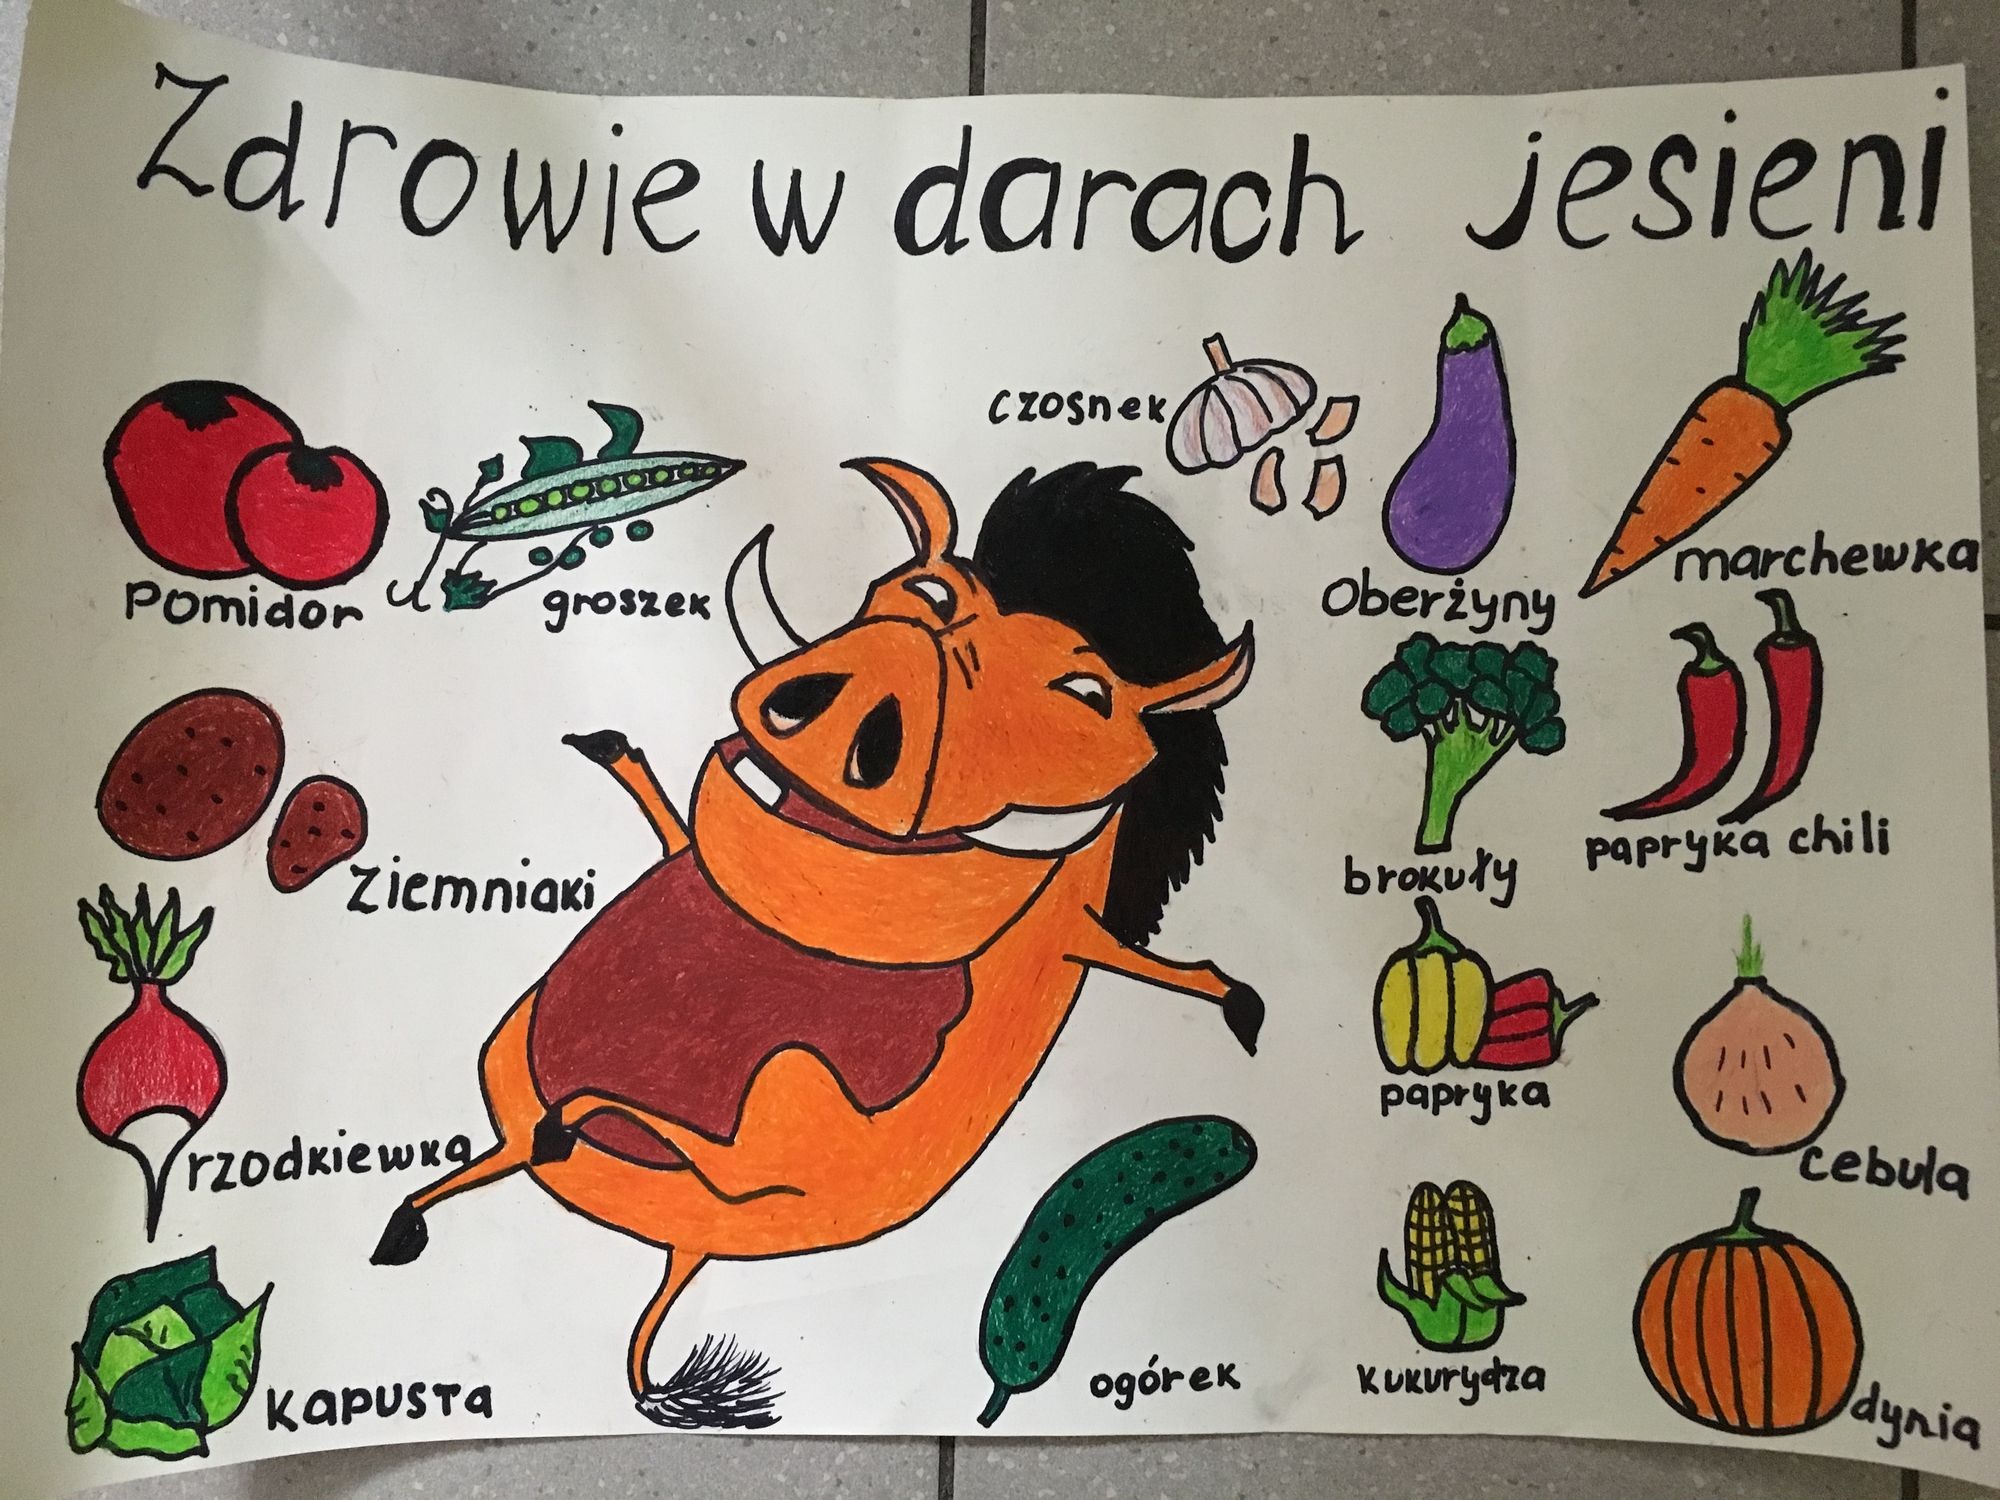 Zdrowie w darach jesieni
czosnek
Pomidor
groszek
Oberżyny
marchewka
Ziemniaki
brokuły
papryka chili
rzodkiewka
papryka
cebula
kapusta
ogórek
kukurydza
dynia